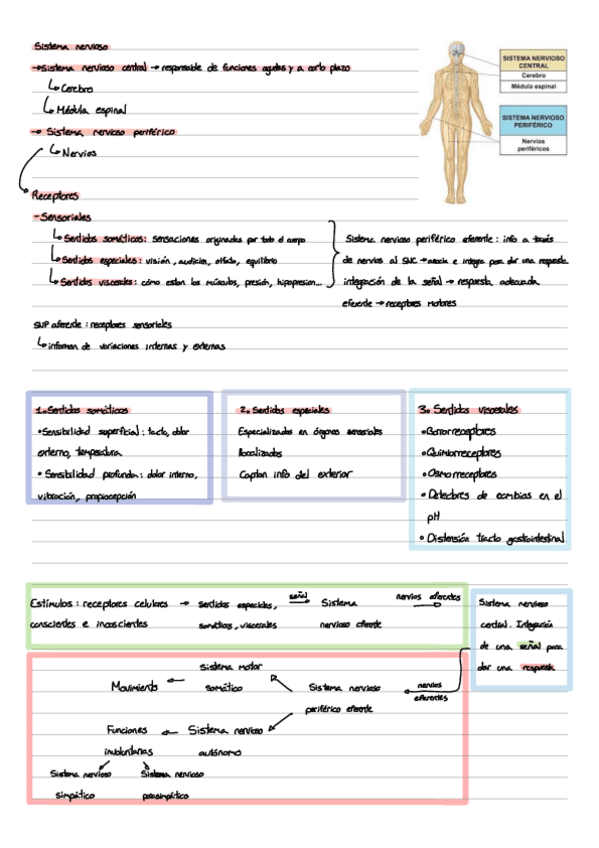 Sistema nervioso
→Sistema nervioso central → responsable de funciones agudas y a corto plazo
↳ Cerebro
↳ Médula espinal
→ Sistema nervioso periférico
↳ Nervios
SISTEMA NERVIOSO
CENTRAL
Cerebro
Médula espinal
SISTEMA NERVIOSO
PERIFÉRICO
Nervios
periféricos
Receptores
- Sensoriales
↳ Sentidos somáticos: sensaciones originadas por todo el cuerpo
↳ Sentidos especiales: visión, audición, olfato, equilibrio
↳ Sentidos viscerales: cómo estan los músculos, presión, hipopresion...
Sistema nervioso periférico eferente: info a través
de nervios al SNC → asocia e integra para dar una respuesta
integración de la señal → respuesta adecuada
eferente → receptores motores
SNP aferente: receptores sensoriales
↳ informan de variaciones internas y externas
1. Sentidos somáticos
• Sensibilidad superficial: tacto, dolor
externo, temperatura
• Sensibilidad profunda: dolor interno,
vibración, propiocepción
2. Sentidos especiales
Especializados en órganos sensoriales
localizados
Captan info del exterior
3. Sentidos viscerales
• Barorreceptores
• Quimiorreceptores
• Osmorreceptores
• Detectores de cambios en el
pH
• Distensión tracto gastrointestinal
Estímulos: receptores celulares → sentidos especiales, señal → Sistema nervios eferentes →
conscientes e inconscientes viscerales nervioso
Sistema nervioso
central. Integración
de una señal para
dar una respuesta
Sistema motor
Movimiento ← somático Sistema nervioso ← nervios
eferentes
periférico eferente
Funciones ← Sistema nervioso
involuntarias autónomo
Sistema nervioso Sistema nervioso
simpático parasimpático